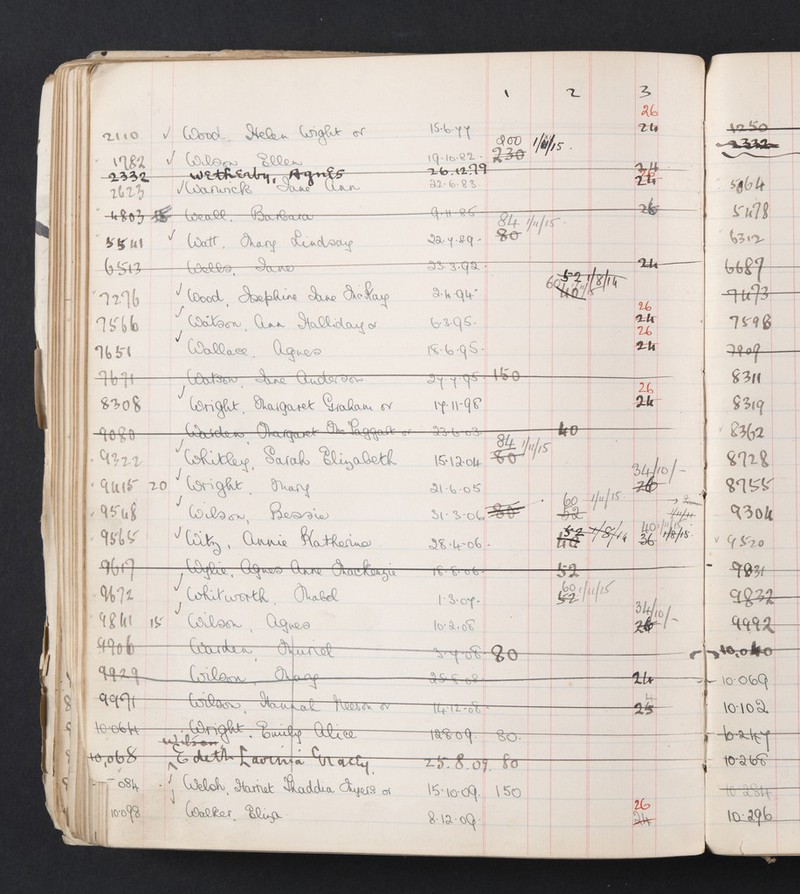 1 2 3
26
2110 ✓ Wood. Helen Wright or 15.6.77 24
1782 ✓ Wilson Ellen 19.10.82. 230 200 1/11/15.
2332 Wetherby, Agnes 26.12.79 24
2623 ✓ Warwick Jane Ann 22.6.83 26 24
4803 Weall. Barbara 9.11.86 26
5541 ✓ Watt. Mary Lindsay 22.7.89. 80 84 1/11/15.
6513 Wells. Jane 23.3.92. 24
7276 ✓ Wood, Josephine Jane McKay 2.4.94. 40 52 1/8/14 60
7566 ✓ Watson, Ann Halliday or 6.3.95. 26 24
7651 ✓ Wallace. Agnes 18.6.95. 26 24
7671 Watson, Jane Anderson 27.7.95. 150
8308 ✓ Wright. Margaret Graham or 17.11.98 26 24
9080 Warden, Margaret McTaggart or 23.6.03 40
9322 ✓ Whitley, Sarah Elizabeth 15.12.04 60 84 1/11/15
9415 20 ✓ Wright. Mary 21.6.05 26 34/10/-
9548 ✓ Wilson, Bessie 31.3.06 80 52 60 1/11/15.
9565 ✓ Witz, Annie Katherina 28.4.06. 40 52 1/8/14 36 1/8/15. 40
9617 Wylie. Agnes Anne Mackenzie 18.8.06. 52
9672 ✓ Whitworth. Mabel 1.3.07. 52 60 1/11/15
9841 15 ✓ Wilson, Agnes 10.2.08 26 34/10/-
9906 Warden, Muriel 3.7.08 80
9929 Wilson, Mary 25.8.08 24
9971 Wilson, Hannah or 14.12.08. 25
10064 Wright. Emily Alice 12.8.09. 80.
10,068 Wilson Edith Lavinia Gracey. 25.8.09. 80
084 ✓ Welsh, Harriet Thaddia Ayers or 15.10.09. 150
10098 Walker, Eliza 8.12.09. 26 24
1250
2332
5064
5478
6312
6687
7473
7598
7909
8311
8319
8362
8728
8755
9304
✓ 9520
9831
9832
9992
10,040
10.069
10.102
10.247
10.268
10.284
10.296